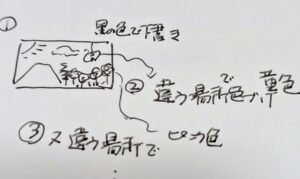 ①
黒の色で下書き
② 違う場所で色づけ 黄色
③ 又違う場所で ピンク色